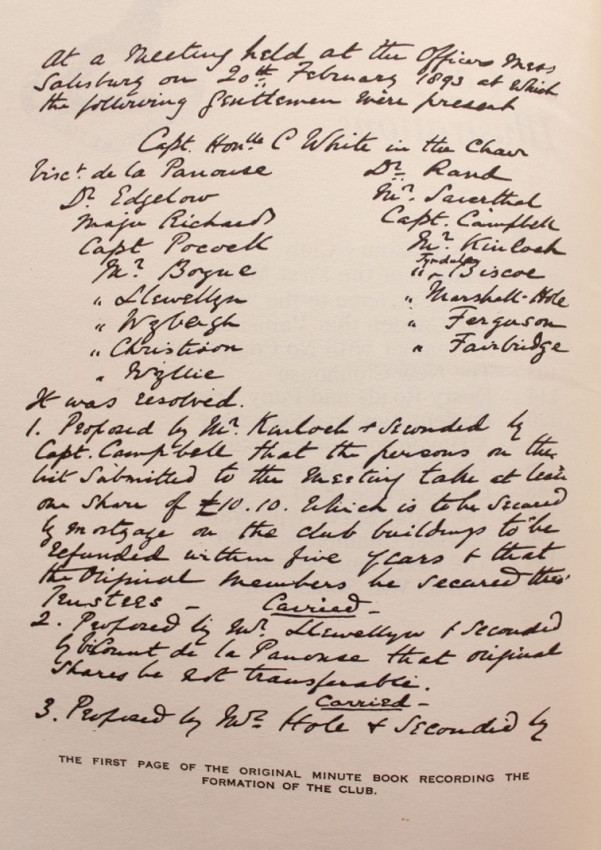 At a Meeting held at the Officers Mess
Salisbury on 20th February 1893 at which
the following gentlemen were present
Capt. Honble C White in the Chair
Visct. de la Panouse Dr. Rand
Dr. Edgelow Mr. Sawerthal
Major Richards Capt. Campbell
Capt Pocock Mr. Kinloch
Mr. Bogue " Tyndale Biscoe
" Llewellyn " Marshall-Hole
" Wybergh " Ferguson
" Christison " Fairbridge
" Wyllie
It was resolved.
1. Proposed by Mr. Kinloch & seconded by
Capt. Campbell that the persons on the
list submitted to the Meeting take at least
one share of £10.10. which is to be secured
by mortgage on the club buildings to be
refunded within five years & that
the Original Members be secured thro'
Trustees – Carried –
2. Proposed by Mr. Llewellyn & seconded
by Vicount de la Panouse that original
shares be not transferable.
Carried –
3. Proposed by Mr. Hole & seconded by
THE FIRST PAGE OF THE ORIGINAL MINUTE BOOK RECORDING THE
FORMATION OF THE CLUB.